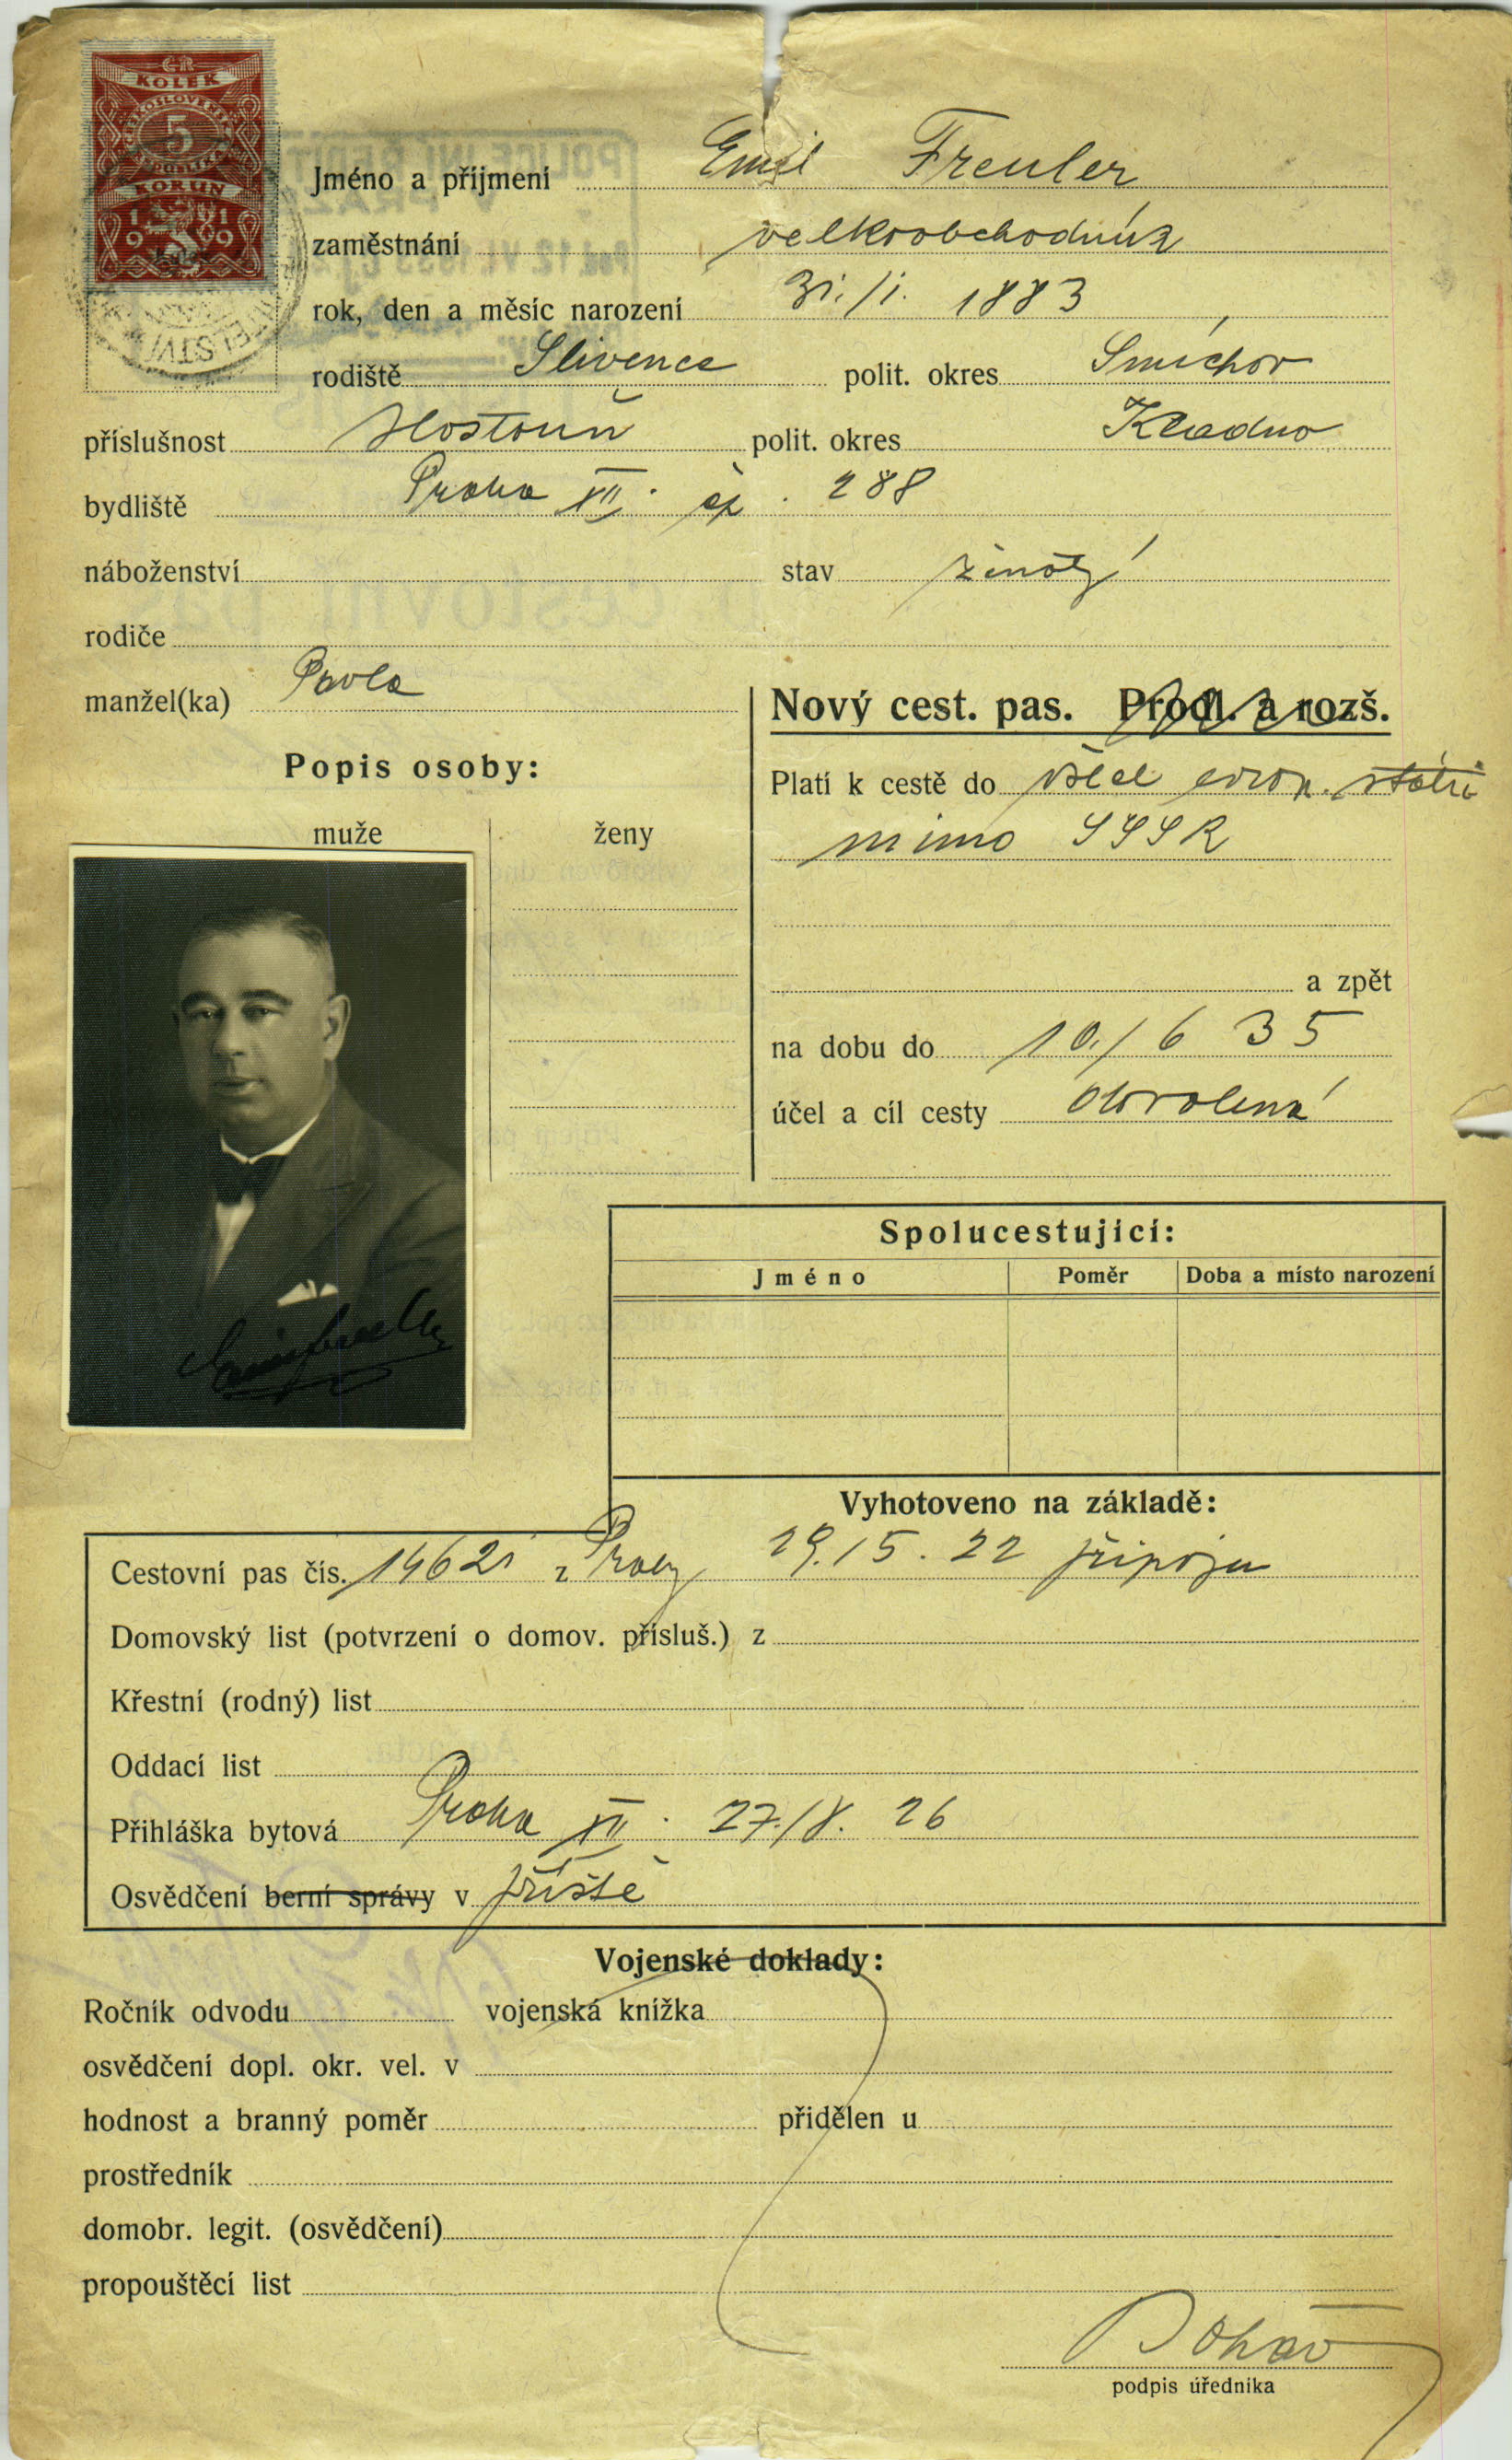 ČR
KOLEK
ČESKOSLOVENSKÁ
5
REPUBLIKA
KORUN
1919
Jméno a příjmení Emil Freuler
zaměstnání velkoobchodník
rok, den a měsíc narození 31./1. 1883
rodiště Slivenec polit. okres Smíchov
příslušnost Hostouň polit. okres Kladno
bydliště Praha XII. čp. 288
náboženství stav ženatý
rodiče
manžel(ka) Pavla
Nový cest. pas. Prodl. a rozš.
Popis osoby:
Platí k cestě do všech evrop. států
muže ženy
mimo SSSR
a zpět
na dobu do 10./6 35
účel a cíl cesty dovolená
Spolucestující:
Jméno Poměr Doba a místo narození
Vyhotoveno na základě:
Cestovní pas čís. 14621 z Prahy 29./5. 22 připojen
Domovský list (potvrzení o domov. přísluš.) z
Křestní (rodný) list
Oddací list
Přihláška bytová Praha XII. 27./8. 26
Osvědčení berní správy v příště
Vojenské doklady:
Ročník odvodu vojenská knížka
osvědčení dopl. okr. vel. v
hodnost a branný poměr přidělen u
prostředník
domobr. legit. (osvědčení)
propouštěcí list
podpis úředníka